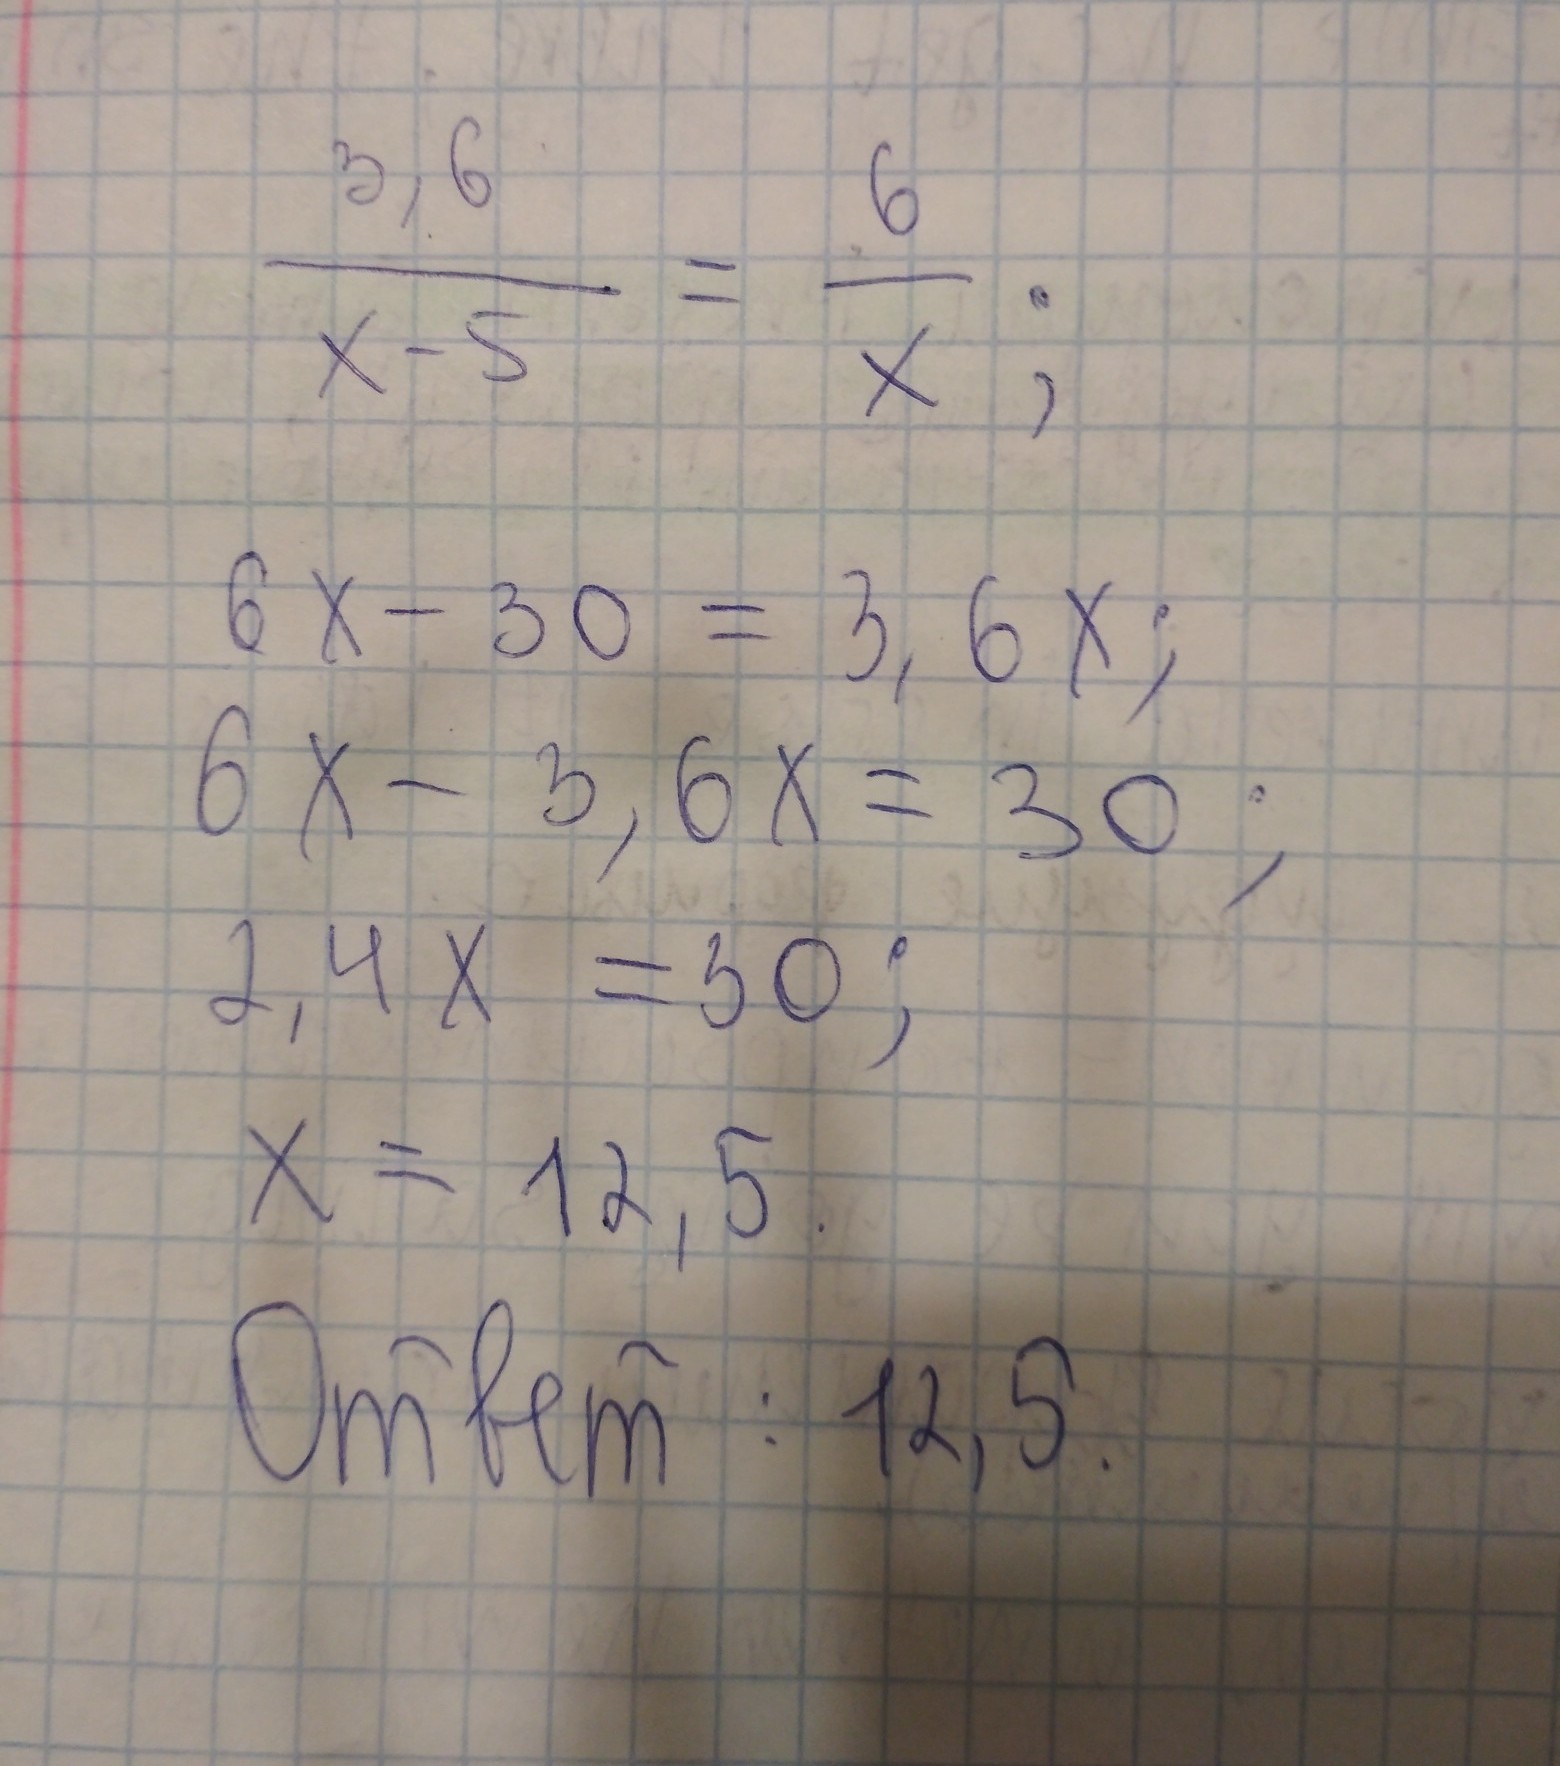 3,6 / x-5 = 6 / x ;
6x - 30 = 3,6x;
6x - 3,6x = 30;
2,4x = 30;
x = 12,5.
Ответ: 12,5.